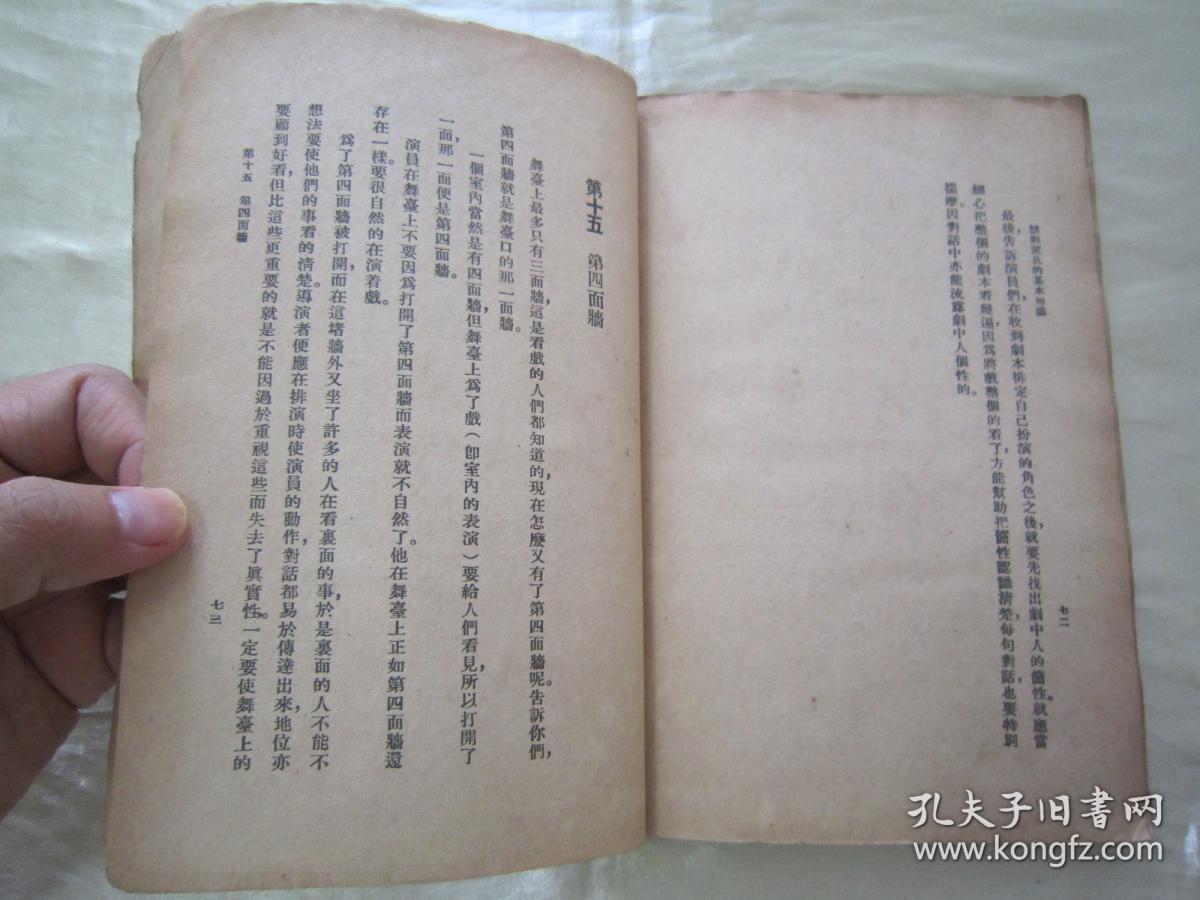 話劇演員的基本知識
七二
最後告訴演員們在收到劇本排定自己扮演的角色之後，就要先找出劇中人的箇性。就應當
細心把整個的劇本看幾遍，因爲將戲整個的看了，方能幫助把箇性認識清楚，每句對話，也要特別
揣摩。因對話中亦能流露劇中人個性的。
第十五　第四面牆
舞臺上最多只有三面牆，這是看戲的人們都知道的，現在怎麼又有了第四面牆呢。告訴你們，
第四面牆就是舞臺口的那一面牆。
一個室內當然是有四面牆，但舞臺上爲了戲（卽室內的表演）要給人們看見，所以打開了
一面，那一面便是第四面牆。
演員在舞臺上不要因爲打開了第四面牆而表演就不自然了。他在舞臺上正如第四面牆還
存在一樣。要很自然的在演着戲。
爲了第四面牆被打開，而在這堵牆外又坐了許多的人在看裏面的事，於是裏面的人不能不
想法要使他們的事看的清楚。導演者便應在排演時使演員的動作，對話都易於傳達出來，地位亦
要顧到好看，但比這些更重要的就是不能因過於重視這些而失去了眞實性。一定要使舞臺上的
第十五　第四面牆
七三
孔夫子旧书网
www.kongfz.com